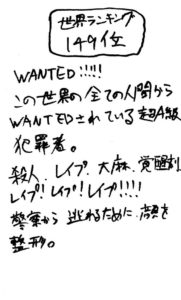 世界ランキング
149位
WANTED!!!!!
この世界の全ての人間から
WANTEDされている超A級
犯罪者。
殺人、レイプ、大麻、覚醒剤
レイプ!レイプ!レイプ!!!!
警察から逃れるために、顔を
整形。